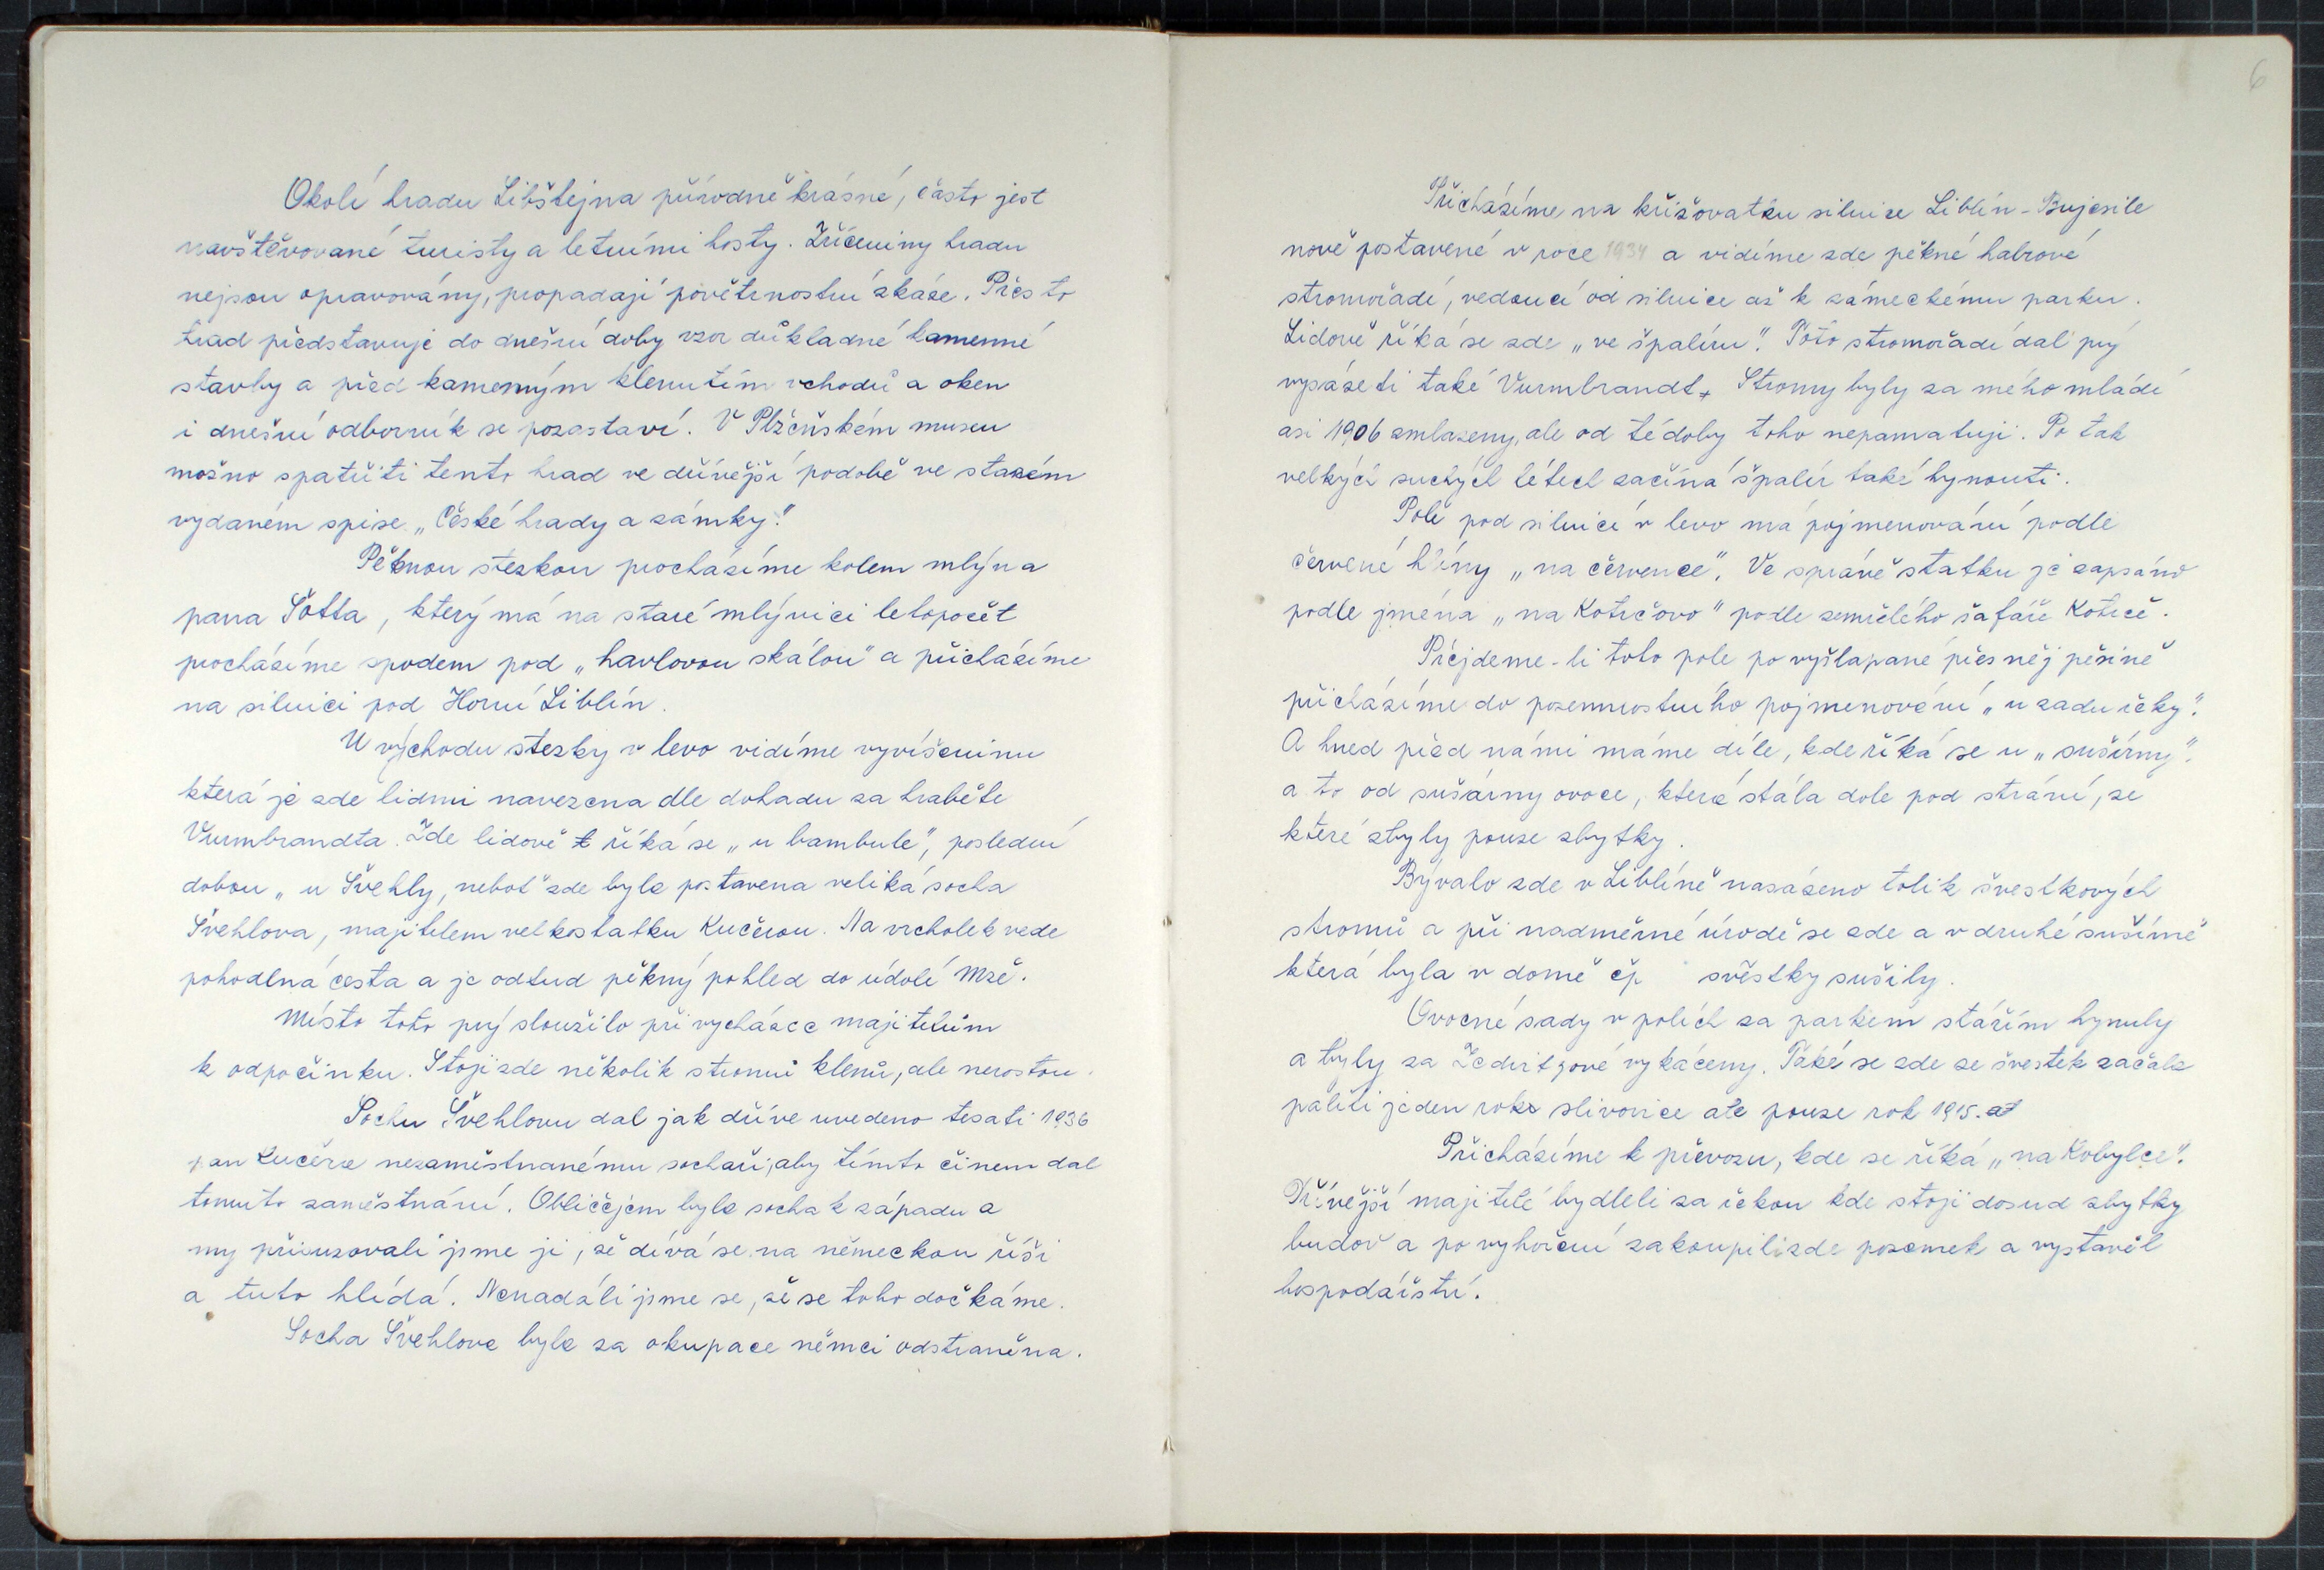 Okolí hradu Libštejna přírodně krásné, často jest
navštěvované turisty a letními hosty. Zříceniny hradu
nejsou opravovány, propadají povětrnostní zkáze. Přes to
hrad představuje do dnešní doby vzor důkladné kamenné
stavby a před kamenným klenutím vchodů a oken
i dnešní odborník se pozastaví. V Plzeňském museu
možno spatřiti tento hrad ve dřívější podobě ve starém
vydaném spise „České hrady a zámky."
Pěknou stezkou procházíme kolem mlýna
pana Šotta, který má na staré mlýnici letopočet
procházíme spodem pod „havlovou skálou" a přicházíme
na silnici pod Horní Liblín.
U východu stezky v levo vidíme vyvíšeninu
která je zde lidmi navezena dle dohadu za hraběte
Vurmbrandta. Zde lidově říká se „u bambule", poslední
dobou „u Švehly, neboť" zde byla postavena veliká socha
Švehlova, majitelem velkostatku Kučerou. Na vrcholek vede
pohodlná cesta a je odtud pěkný pohled do údolí Mže.
Místo toto prý sloužilo při vycházce majitelům
k odpočinku. Stojí zde několik stromů klenů, ale nerostou.
Sochu Švehlovu dal jak dříve uvedeno tesati 1936
pan Kučera nezaměstnanému sochaři, aby tímto činem dal
tomuto zaměstnání. Obličejem byla socha k západu a
my přisuzovali jsme ji, že dívá se na německou říši
a tuto hlídá. Nenadáli jsme se, že se toho dočkáme.
Socha Švehlova byla za okupace němci odstraněna.
6
Přicházíme na křižovatku silnice Liblín - Bujesile
nově postavené v roce 1934 a vidíme zde pěkné habrové
stromořadí, vedoucí od silnice až k zámeckému parku.
Lidově říká se zde „ve špalíru". Toto stromořadí dal prý
vysázeti také Vurmbrandt. Stromy byly za mého mládí
asi 1906 zmlazeny, ale od té doby toho nepamatuji. Po tak
velkých suchých létech začíná špalír také hynouti.
Pole pod silnicí v levo má pojmenování podle
červené hlíny „na července". Ve správě statku je zapsáno
podle jména „na Kotrčovo" podle zemřelého šafáře Kotrče.
Přejdeme-li toto pole po vyšlapané přes něj pěšině
přicházíme do pozemnostního pojmenování „u zadu ičky".
A hned před námi máme díle, kde říká se u „sušírny".
a to od sušárny ovoce, která stála dole pod strání, ze
které zbyly pouze zbytky.
Bývalo zde v Liblíně nasázeno tolik švestkových
stromů a při nadměrné úrodě se zde a v druhé sušírně
která byla v domě čp svěstky sušily.
Ovocné sady v polích za parkem stářím hynuly
a byly za Zedwitzové vykáceny. Také se zde ze švestek začala
páliti jeden rok slivovice ale pouze rok 1915.
Přicházíme k převozu, kde se říká „na Kobylce".
Dřívější majitelé bydleli za řekou kde stojí dosud zbytky
budov a po vyhoření zakoupili zde pozemek a vystavěl
hospodářství.